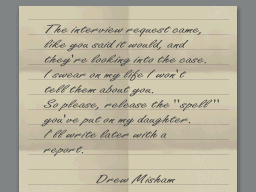 The interview request came,
like you said it would, and
they're looking into the case.
I swear on my life I won't
tell them about you.
So please, release the "spell"
you've put on my daughter.
I'll write later with a
report.
Drew Misham